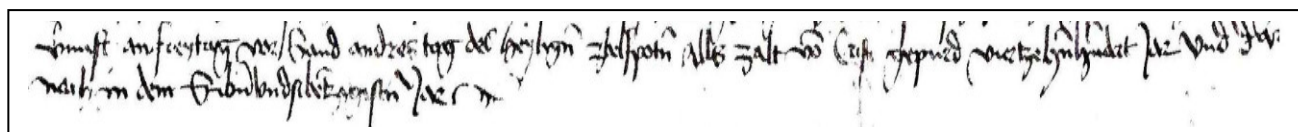 kunfft an freytag vor Sand andres tag des heyligñ zbelfpotñ Alls zalt võ Crist gepurd viertzehñhundrt Jar Und dar
nach in dem Sibñundsibentzigistñ Jar